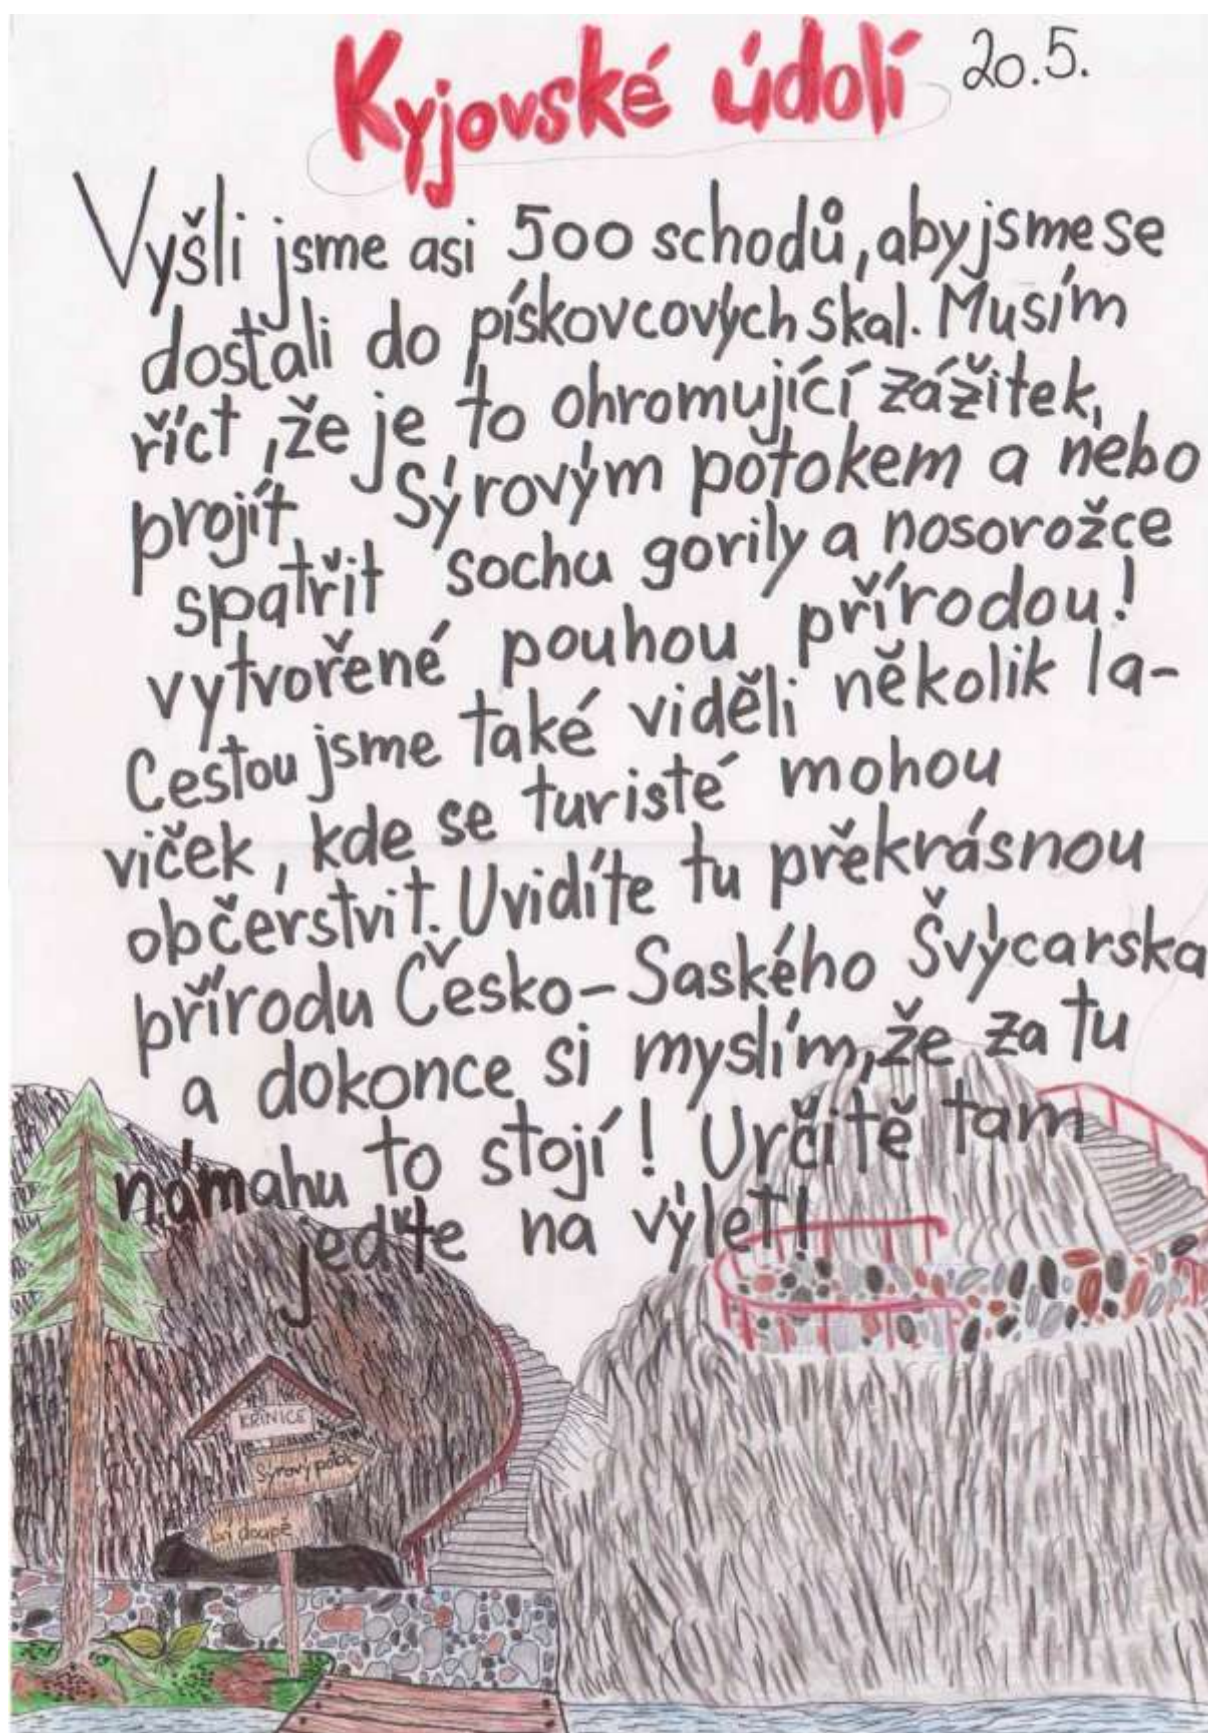 Kyjovské údolí 20.5.
Vyšli jsme asi 500 schodů, aby jsme se
dostali do pískovcových skal. Musím
říct, že je to ohromující zážitek,
projít Sýrovým potokem a nebo
spatřit sochu gorily a nosorožce
vytvořené pouhou přírodou!
Cestou jsme také viděli několik la-
viček, kde se turisté mohou
občerstvit. Uvidíte tu překrásnou
přírodu Česko-Saského Švýcarska
a dokonce si myslím, že za tu
námahu to stojí! Určitě tam
jeďte na výlet!
KŘINICE
Sýrový potok
doupě